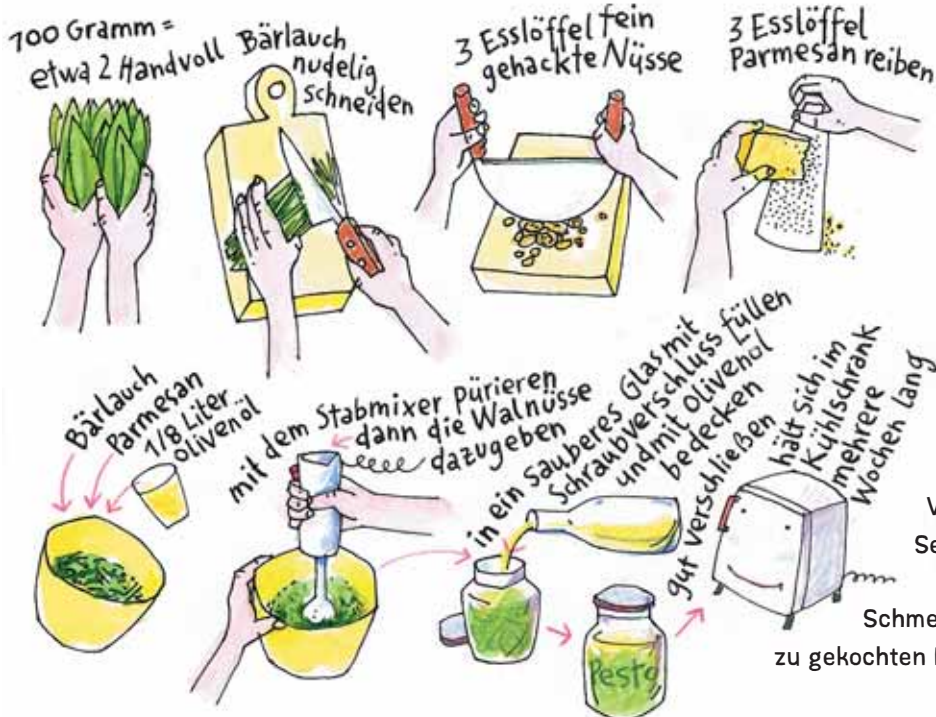 100 Gramm =
etwa 2 Handvoll
Bärlauch
nudelig
schneiden
3 Esslöffel fein
gehackte Nüsse
3 Esslöffel
Parmesan reiben
Bärlauch
Parmesan
1/8 Liter
Olivenöl
mit dem Stabmixer pürieren
dann die Walnüsse
dazugeben
in ein sauberes Glas mit
Schraubverschluss füllen
und mit Olivenöl
bedecken
gut verschließen
hält sich im
Kühlschrank
mehrere
Wochen lang
Pesto
V
Se
Schme
zu gekochten